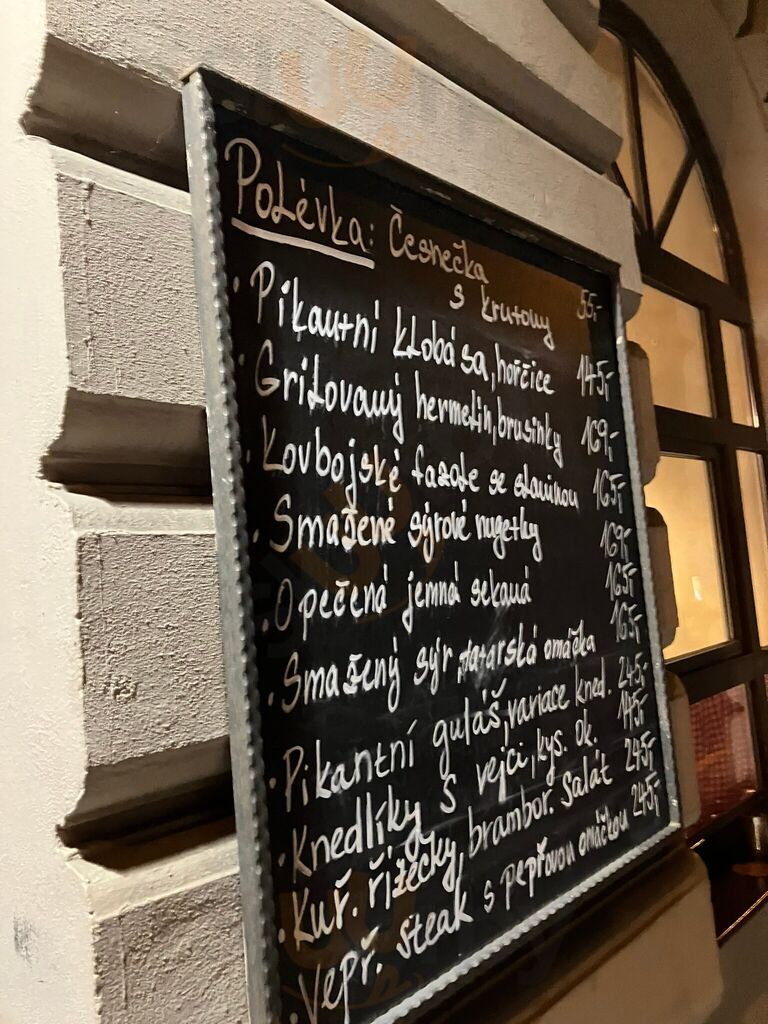 Polévka: Česnečka
s krutony 55,-
· Pikantní klobása, hořčice 145,-
· Grilovaný hermelín, brusinky 169,-
· Kovbojské fazole se slaninou 165,-
· Smažené sýrové nugetky 169,-
· Opečená jemná sekaná 165,-
· Smažený sýr, tatarská omáčka 165,-
· Pikantní guláš, variace kned. 245,-
· Knedlíky s vejci, kys. ok. 145,-
· Kuř. řízečky, brambor. Salát 245,-
· Vepř. steak s pepřovou omáčkou 245,-